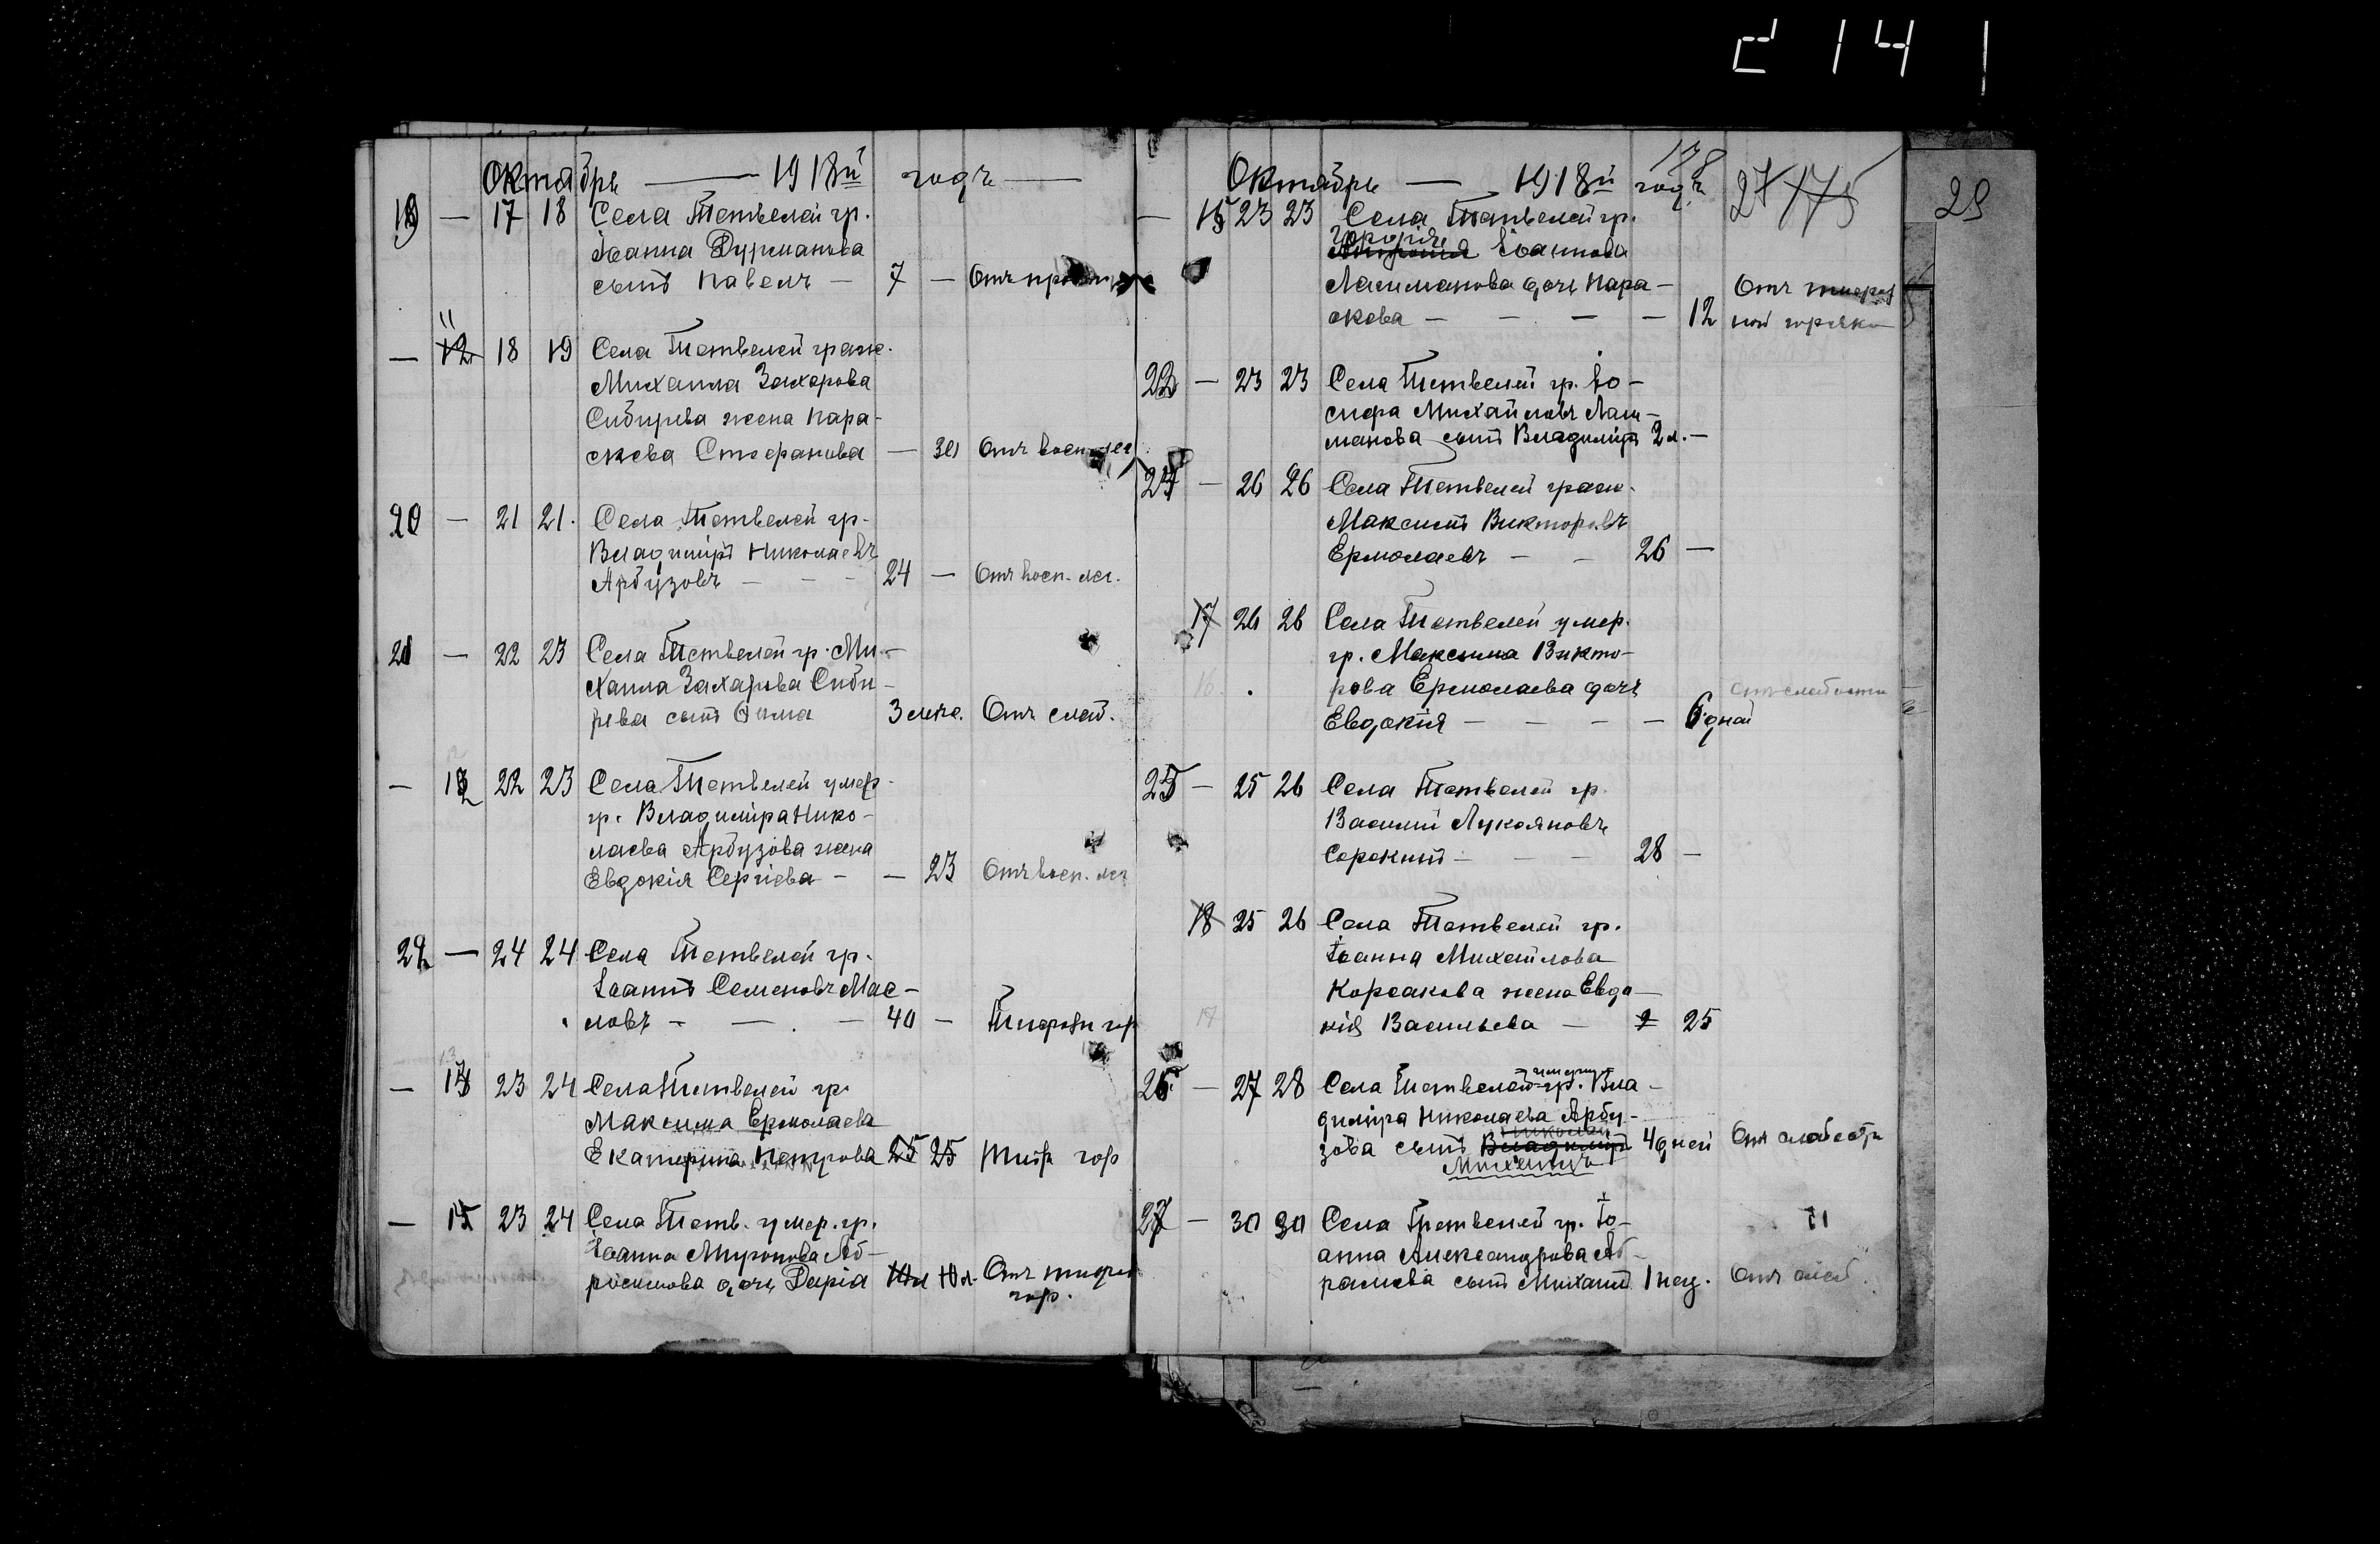 2 14 1
Октябрь — 1918й годъ —
19 — 17 18 Села Тетвелей гр.
Іоанна Дурманова
сынъ Павелъ — 7 — Отъ
— 11 12 18 19 Села Тетвелей граж.
Михаила Захарова
Сибирева жена Пара-
скева Стефанова — 30 Отъ восп. лег
20 — 21 21. Села Тетвелей гр.
Владиміръ Николаевъ
Арбузовъ — — — 24 — Отъ восп. лег.
21 — 22 23 Села Тетвелей гр. Ми-
хаила Захарова Сиби-
рева сынъ Ѳома 3 мѣс. Отъ слаб.
— 12 22 23 Села Тетвелей умер.
гр. Владиміра Нико-
лаева Арбузова жена
Евдокія Сергіева — — 23 Отъ восп. лег
22 — 24 24 Села Тетвелей гр.
Іоаннъ Семеновъ Мас-
ловъ — — — 40 — Тифозн гор
— 13 23 24 Села Тетвелей гр.
Максима Ермолаева
Екатерина Петрова 25 25 Тиф гор
— 23 24 Села Тетв. умер. гр.
Іоанна Миронова Аб-
росимова дочь Дарія Отъ тифоз
гор.
Октябрь — 1918й годъ 27 175 29
— 15 23 23 Села Тетвелей гр.
Іоаннова
Лашманова дочь Пара-
скева — — — — 12 Отъ тифоз
ной горячки
23 — 23 23 Села Тетвелей гр. Іо-
сифа Михайловъ Лаш-
манова сынъ Владиміръ 2 л. —
24 — 26 26 Села Тетвелей граж.
Максимъ Викторовъ
Ермолаевъ — — 26 —
17 26 26 Села Тетвелей умер.
гр. Максима Викто-
16. рова Ермолаева дочь отъ слабости
Евдокія — — — — 6 дней
25 — 25 26 Села Тетвелей гр.
Василій Лукояновъ
Сорокинъ — — — 28 —
18 25 26 Села Тетвелей гр.
Іоанна Михайлова
Корсакова жена Евдо-
17 кія Васильева — 25
26 — 27 28 Села Тетвелей умерш. гр. Вла-
диміра Николаева Арбу-
Николай
зова сынъ Владиміръ 4 дней Отъ слабости
Михаилъ
27 — 30 30 Села Тетвелей гр. Іо-
анна Александрова Аб-
рамева сынъ Михаилъ 1 нед. Отъ слаб.